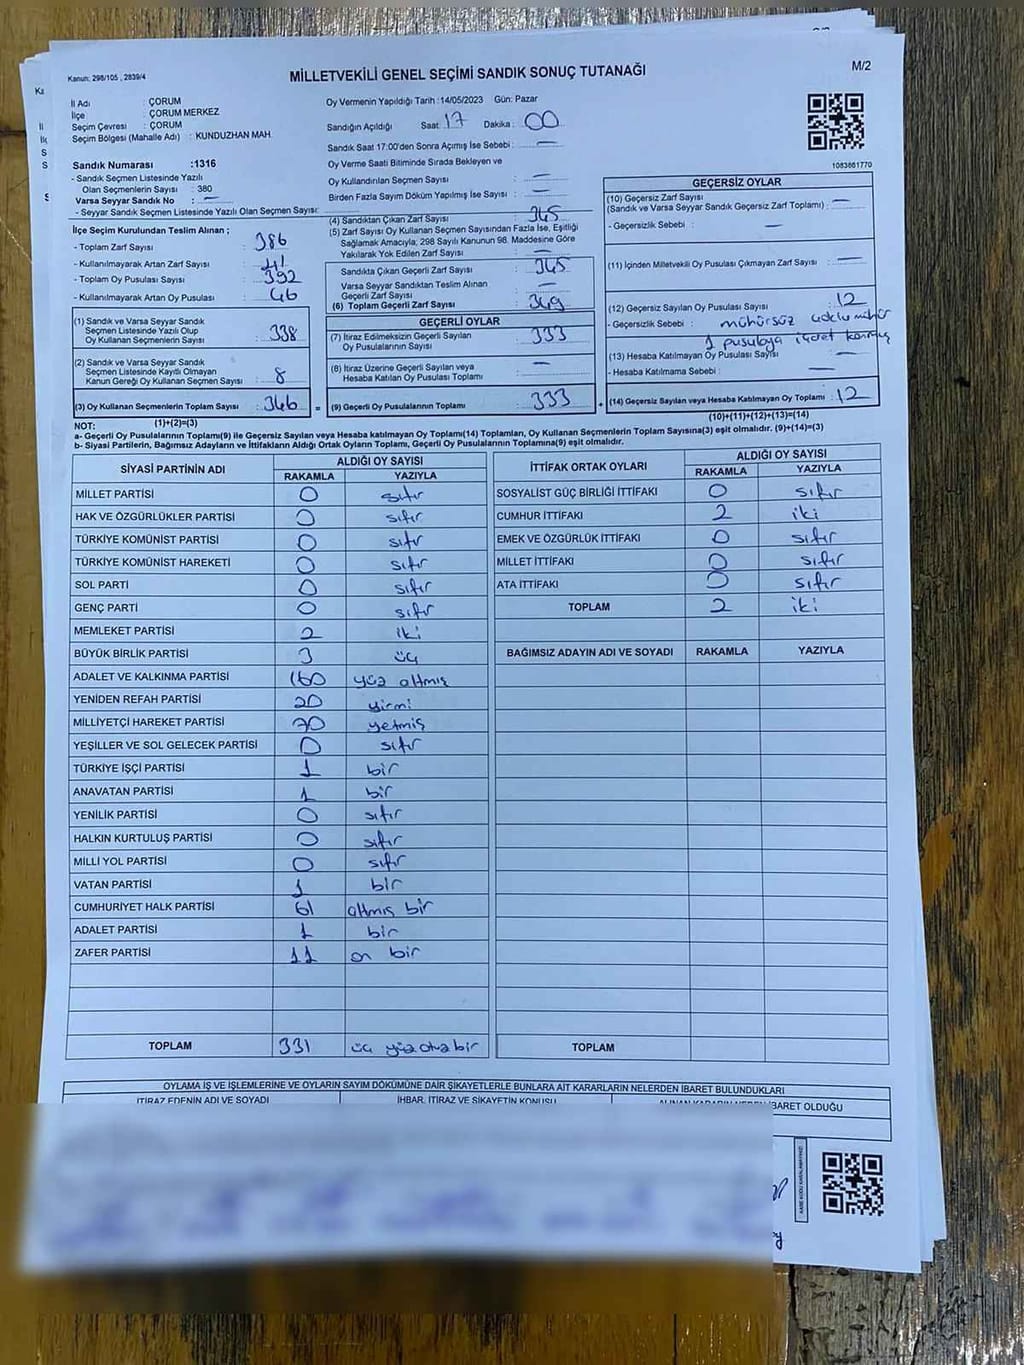 Kanun: 298/105 , 2839/4
MİLLETVEKİLİ GENEL SEÇİMİ SANDIK SONUÇ TUTANAĞI
M/2
İl Adı : ÇORUM
İlçe : ÇORUM MERKEZ
Seçim Çevresi : ÇORUM
Seçim Bölgesi (Mahalle Adı) : KUNDUZHAN MAH.
Sandık Numarası :1316
- Sandık Seçmen Listesinde Yazılı
Olan Seçmenlerin Sayısı : 380
Varsa Seyyar Sandık No : —
- Seyyar Sandık Seçmen Listesinde Yazılı Olan Seçmen Sayısı:
İlçe Seçim Kurulundan Teslim Alınan ;
- Toplam Zarf Sayısı : 386
- Kullanılmayarak Artan Zarf Sayısı : 41
- Toplam Oy Pusulası Sayısı : 392
- Kullanılmayarak Artan Oy Pusulası : 46
(1) Sandık ve Varsa Seyyar Sandık
Seçmen Listesinde Yazılı Olup
Oy Kullanan Seçmenlerin Sayısı : 338
(2) Sandık ve Varsa Seyyar Sandık
Seçmen Listesinde Kayıtlı Olmayan
Kanun Gereği Oy Kullanan Seçmen Sayısı : 8
(3) Oy Kullanan Seçmenlerin Toplam Sayısı : 346
(1)+(2)=(3)
Oy Vermenin Yapıldığı Tarih :14/05/2023 Gün: Pazar
Sandığın Açıldığı Saat: 17 Dakika : 00
Sandık Saat 17:00'den Sonra Açımış İse Sebebi : —
Oy Verme Saati Bitiminde Sırada Bekleyen ve
Oy Kullandırılan Seçmen Sayısı : —
Birden Fazla Sayım Döküm Yapılmış İse Sayısı : —
(4) Sandıktan Çıkan Zarf Sayısı : 345
(5) Zarf Sayısı Oy Kullanan Seçmen Sayısından Fazla İse, Eşitliği
Sağlamak Amacıyla; 298 Sayılı Kanunun 98. Maddesine Göre
Yakılarak Yok Edilen Zarf Sayısı : —
Sandıkta Çıkan Geçerli Zarf Sayısı : 345
Varsa Seyyar Sandıktan Teslim Alınan
Geçerli Zarf Sayısı : —
(6) Toplam Geçerli Zarf Sayısı : 349
GEÇERLİ OYLAR
(7) İtiraz Edilmeksizin Geçerli Sayılan
Oy Pusulalarının Sayısı : 333
(8) İtiraz Üzerine Geçerli Sayılan veya
Hesaba Katılan Oy Pusulası Toplamı : —
= (9) Geçerli Oy Pusulalarının Toplamı : 333
1083661770
GEÇERSİZ OYLAR
(10) Geçersiz Zarf Sayısı
(Sandık ve Varsa Seyyar Sandık Geçersiz Zarf Toplamı) : —
- Geçersizlik Sebebi : —
(11) İçinden Milletvekili Oy Pusulası Çıkmayan Zarf Sayısı : —
(12) Geçersiz Sayılan Oy Pusulası Sayısı : 12
- Geçersizlik Sebebi : mühürsüz
1 pusulaya
(13) Hesaba Katılmayan Oy Pusulası Sayısı : —
- Hesaba Katılmama Sebebi : —
+ (14) Geçersiz Sayılan veya Hesaba Katılmayan Oy Toplamı : 12
(10)+(11)+(12)+(13)=(14)
NOT:
a- Geçerli Oy Pusulalarının Toplamı(9) ile Geçersiz Sayılan veya Hesaba katılmayan Oy Toplamı(14) Toplamları, Oy Kullanan Seçmenlerin Toplam Sayısına(3) eşit olmalıdır. (9)+(14)=(3)
b- Siyasi Partilerin, Bağımsız Adayların ve İttifakların Aldığı Ortak Oyların Toplamı, Geçerli Oy Pusulalarının Toplamına(9) eşit olmalıdır.
SİYASİ PARTİNİN ADI
ALDIĞI OY SAYISI
RAKAMLA YAZIYLA
MİLLET PARTİSİ 0 sıfır
HAK VE ÖZGÜRLÜKLER PARTİSİ 0 sıfır
TÜRKİYE KOMÜNİST PARTİSİ 0 sıfır
TÜRKİYE KOMÜNİST HAREKETİ 0 sıfır
SOL PARTİ 0 sıfır
GENÇ PARTİ 0 sıfır
MEMLEKET PARTİSİ 2 iki
BÜYÜK BİRLİK PARTİSİ 3 üç
ADALET VE KALKINMA PARTİSİ 160 yüz altmış
YENİDEN REFAH PARTİSİ 20 yirmi
MİLLİYETÇİ HAREKET PARTİSİ 70 yetmiş
YEŞİLLER VE SOL GELECEK PARTİSİ 0 sıfır
TÜRKİYE İŞÇİ PARTİSİ 1 bir
ANAVATAN PARTİSİ 1 bir
YENİLİK PARTİSİ 0 sıfır
HALKIN KURTULUŞ PARTİSİ 0 sıfır
MİLLİ YOL PARTİSİ 0 sıfır
VATAN PARTİSİ 1 bir
CUMHURİYET HALK PARTİSİ 61 altmış bir
ADALET PARTİSİ 1 bir
ZAFER PARTİSİ 11 on bir
TOPLAM 331 üç yüz otuz bir
İTTİFAK ORTAK OYLARI
ALDIĞI OY SAYISI
RAKAMLA YAZIYLA
SOSYALİST GÜÇ BİRLİĞİ İTTİFAKI 0 sıfır
CUMHUR İTTİFAKI 2 iki
EMEK VE ÖZGÜRLÜK İTTİFAKI 0 sıfır
MİLLET İTTİFAKI 0 sıfır
ATA İTTİFAKI 0 sıfır
TOPLAM 2 iki
BAĞIMSIZ ADAYIN ADI VE SOYADI RAKAMLA YAZIYLA
TOPLAM
OYLAMA İŞ VE İŞLEMLERİNE VE OYLARIN SAYIM DÖKÜMÜNE DAİR ŞİKAYETLERLE BUNLARA AİT KARARLARIN NELERDEN İBARET BULUNDUKLARI
İTİRAZ EDENİN ADI VE SOYADI İHBAR, İTİRAZ VE ŞİKAYETİN KONUSU ALINAN KARARIN NEDEN İBARET OLDUĞU